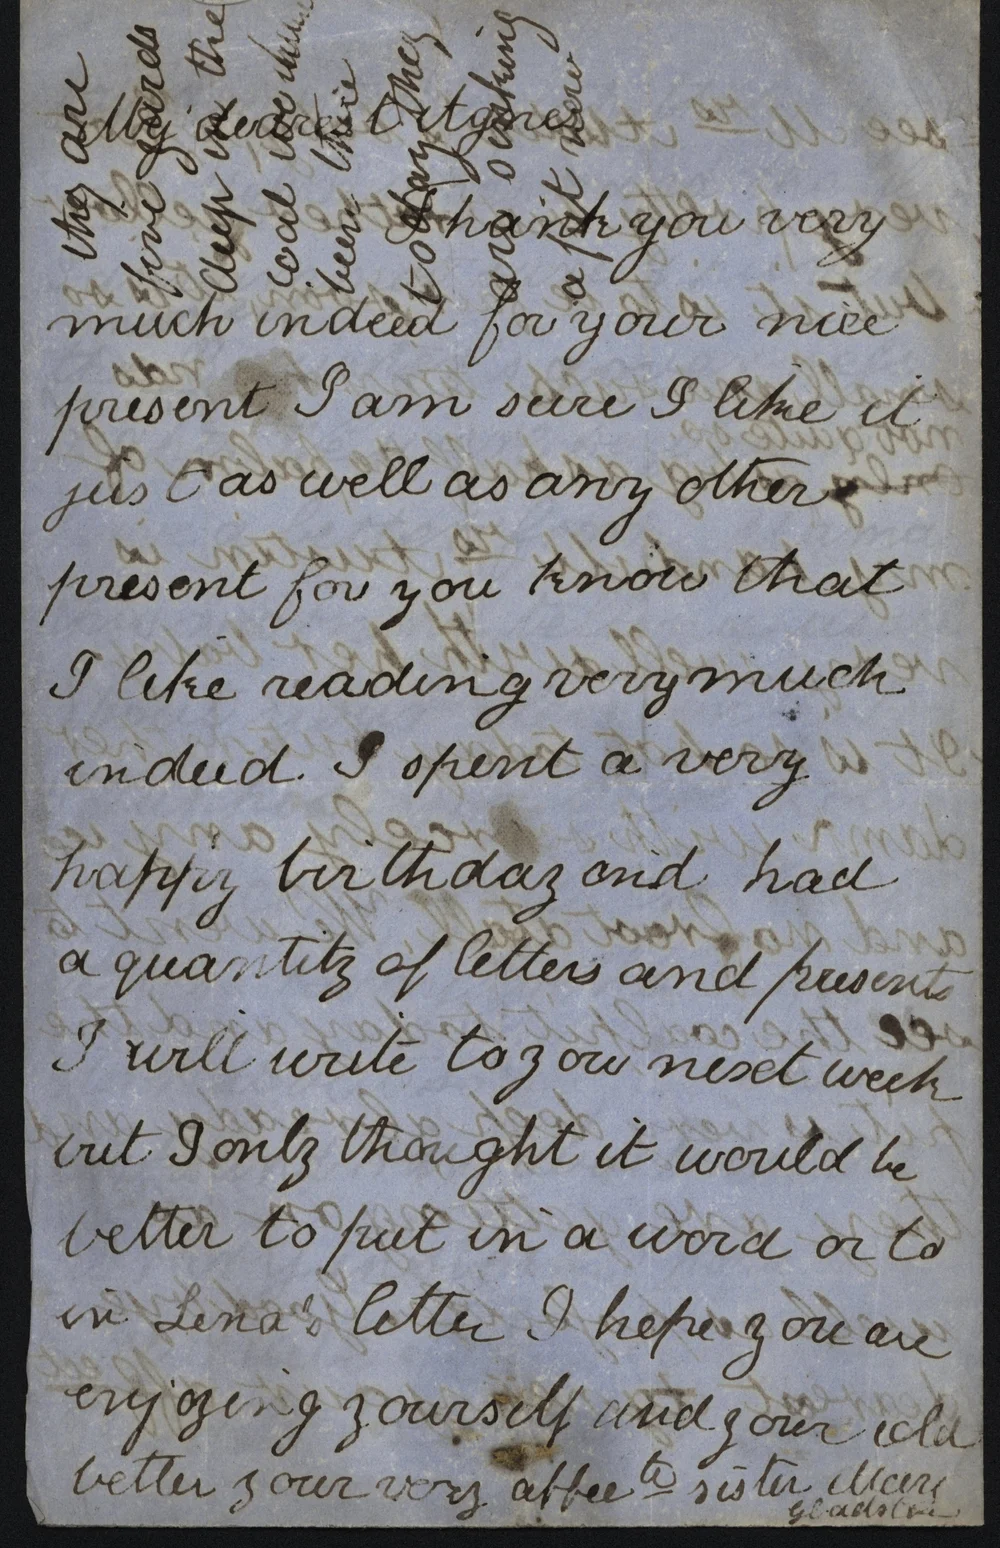 My dearest Agnes
Thank you very
much indeed for your nice
present I am sure I like it
just as well as any other
present for you know that
I like reading very much
indeed. I spent a very
happy birthday and had
a quantity of letters and presents
I will write to you next week
but I only thought it would be
better to put in a word or to
in Lena's letter I hope you are
enjoying yourself and your cold
better your very affecte sister Mary
Gladstone
they are
five yards
deep in the
coal we have
been there
to day they
are sinking
a pit now